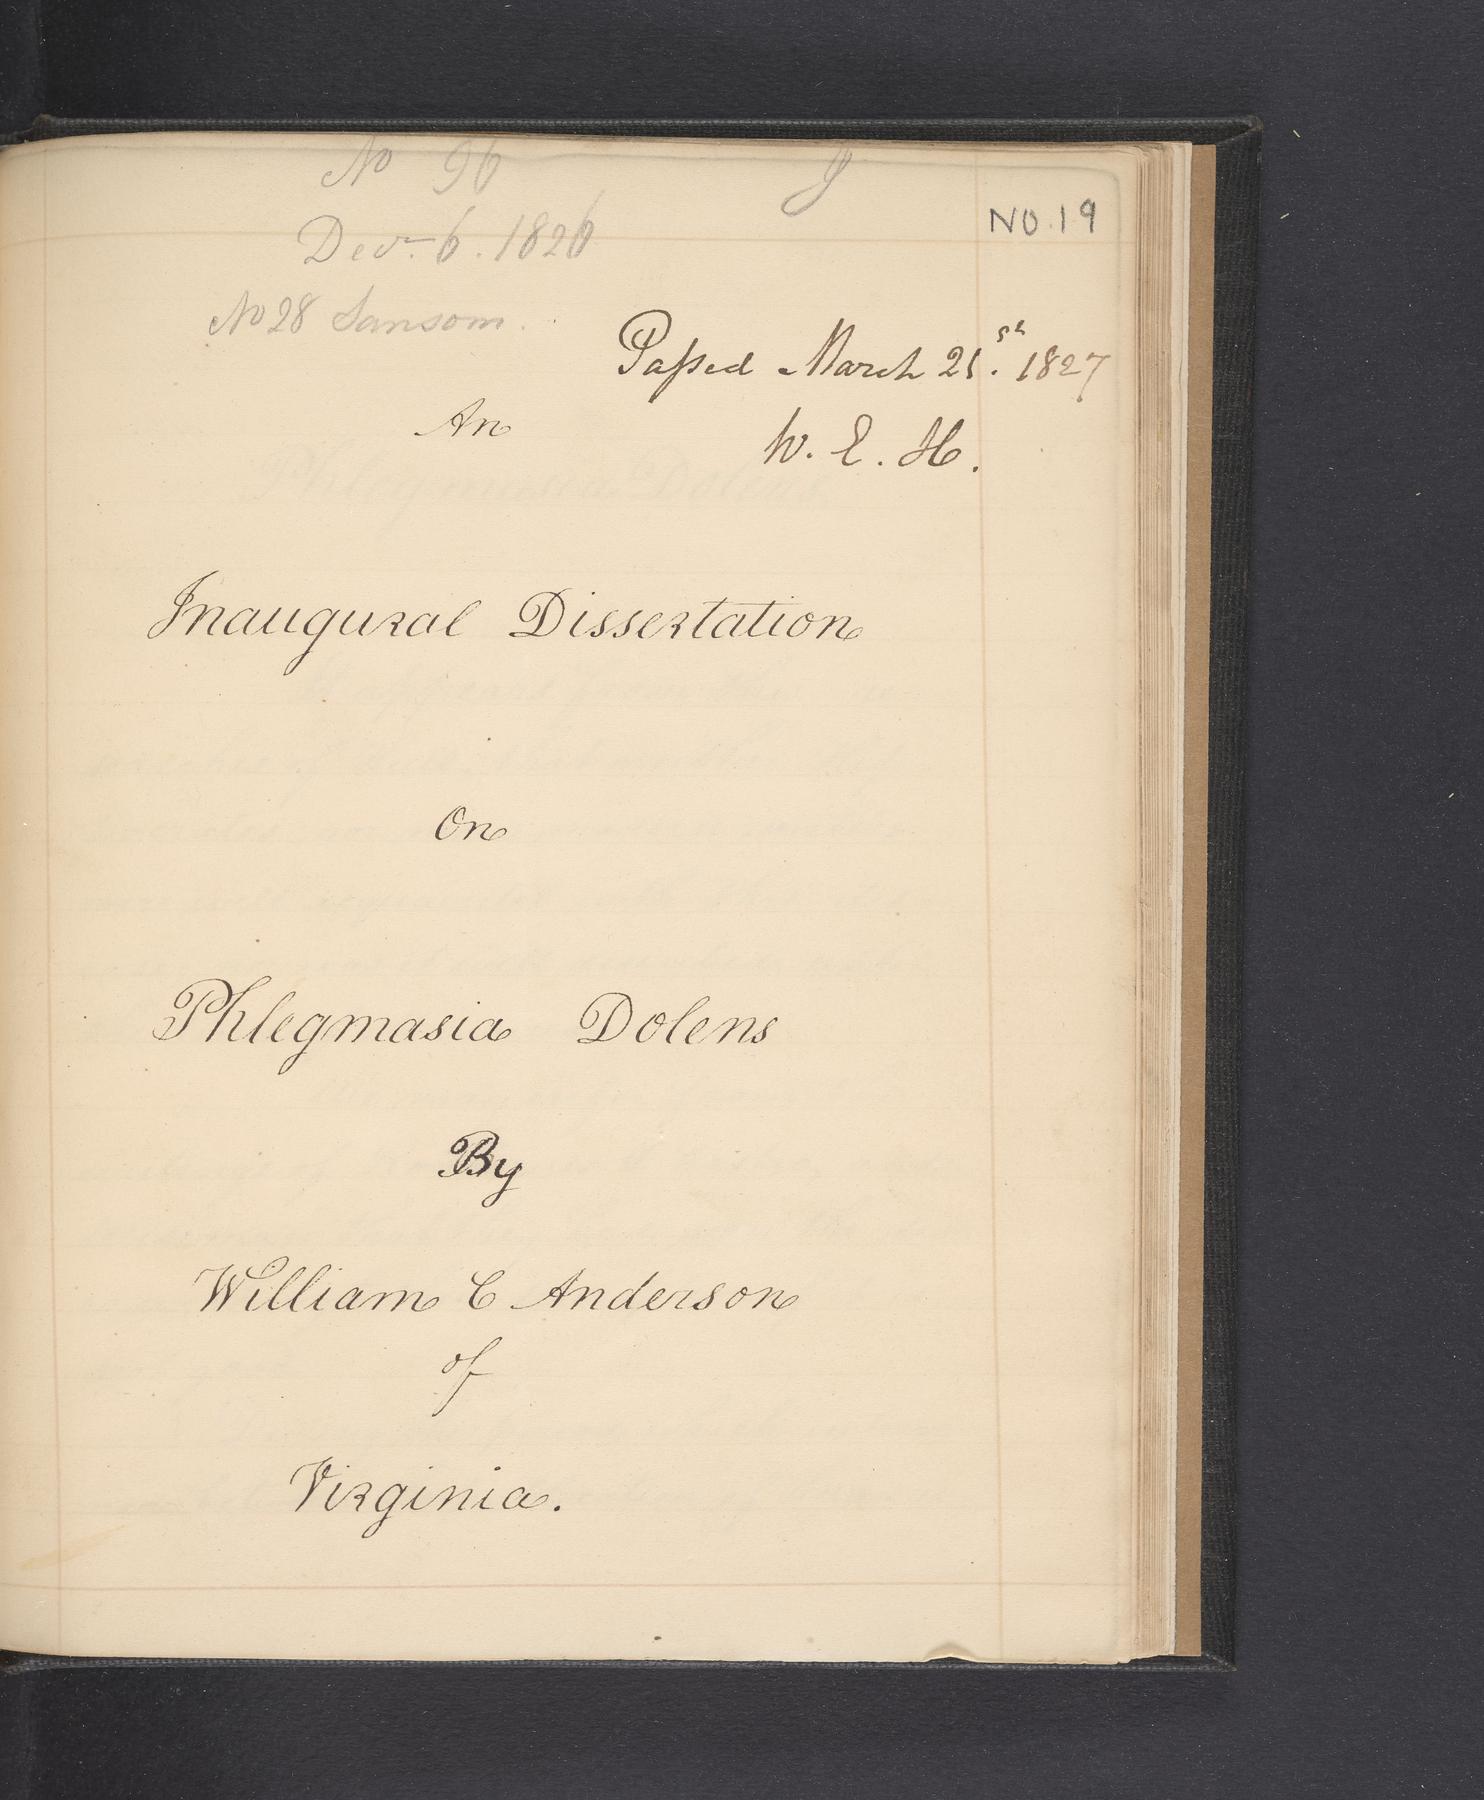 No 96
NO. 19
Decr. 6. 1826
No 28 Sansom.
Passed March 21.st 1827
W. E. H.
An
Inaugural Dissertation
On
Phlegmasia Dolens
By
William C Anderson
of
Virginia.